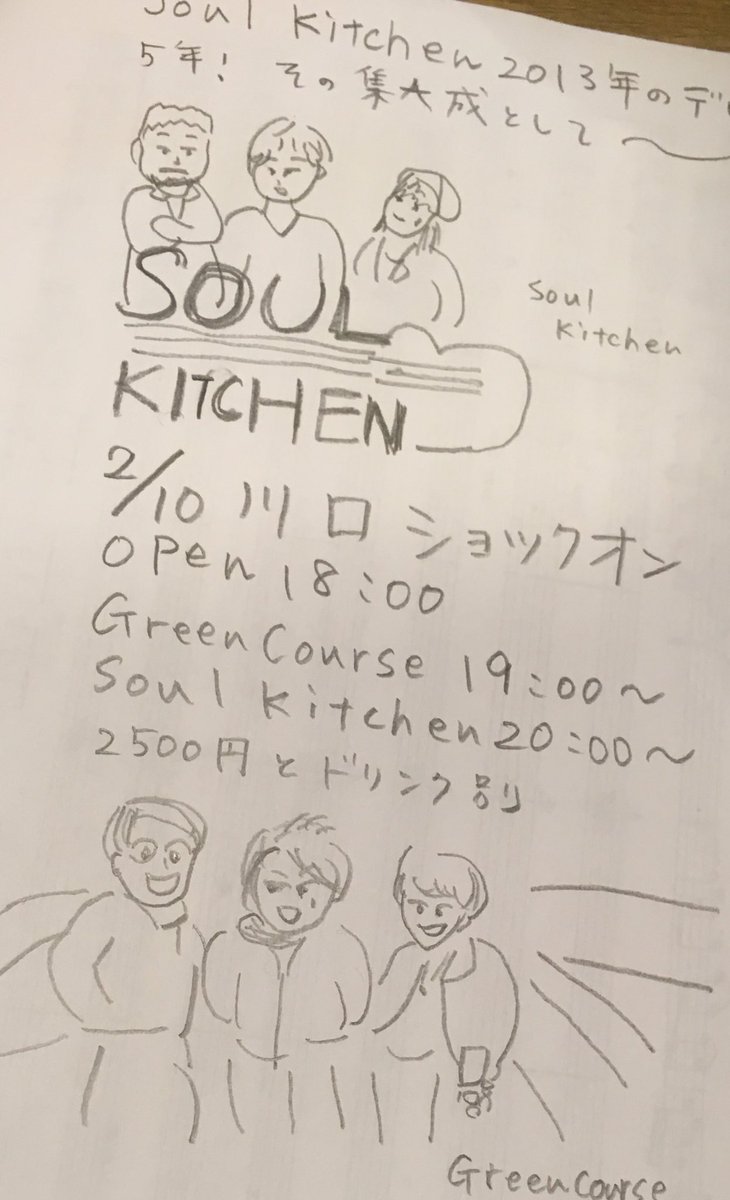 Soul Kitchen 2013年のデ
5年! その集大成として〜
SOUL
KITCHEN
Soul
Kitchen
2/10 川口 ショックオン
OPen 18:00
Green Course 19:00〜
Soul Kitchen 20:00〜
2500円とドリンク別
Green Course